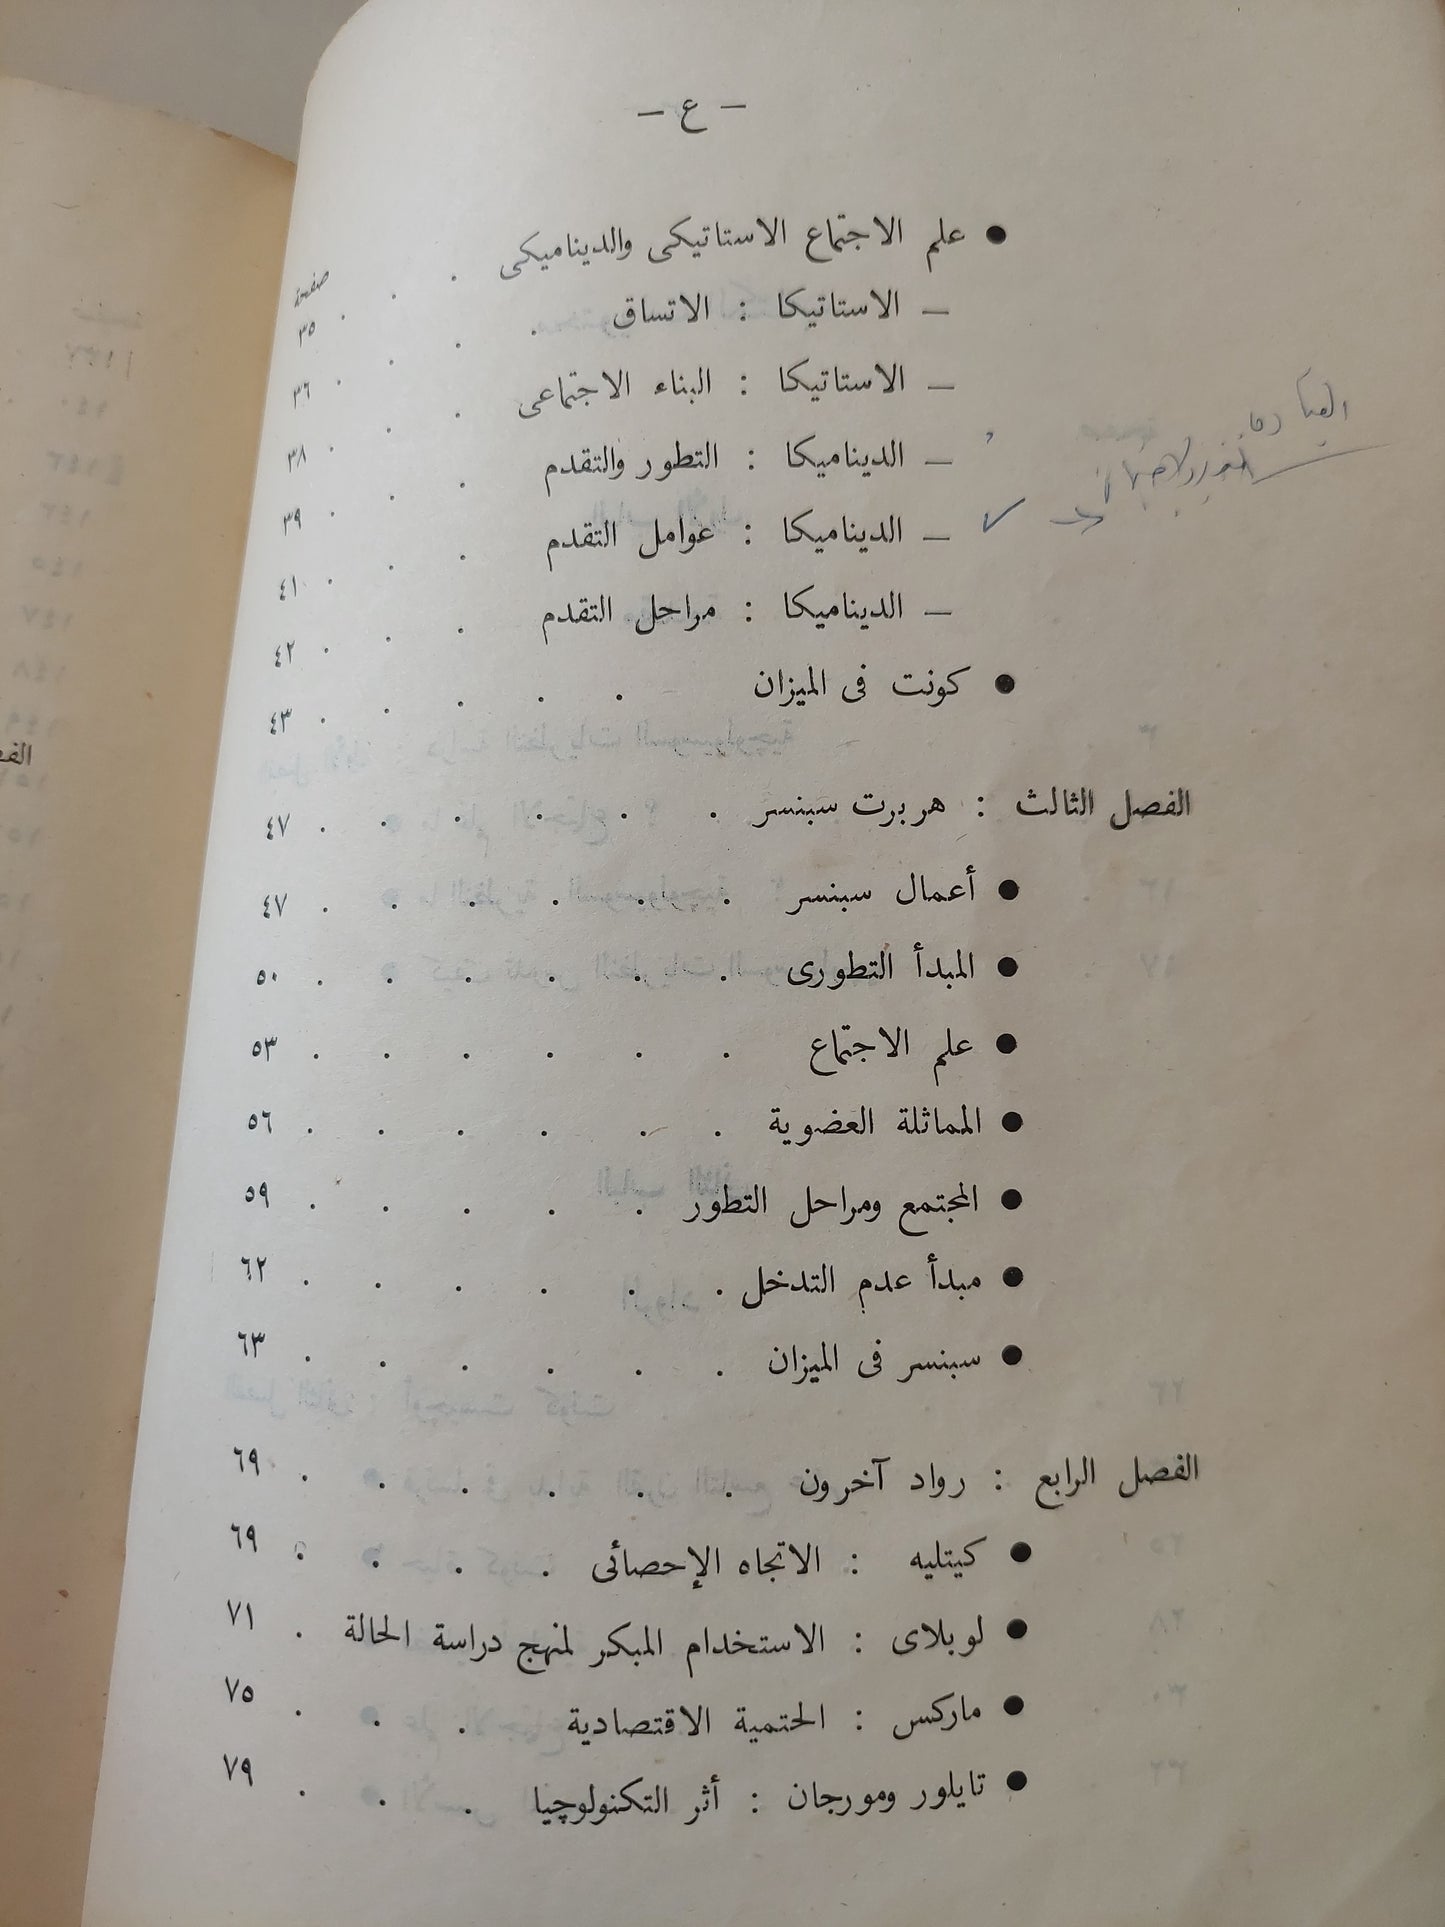 — ع —
صفحة
● علم الاجتماع الاستاتيكى والديناميكى . . . ٣٥
— الاستاتيكا : الاتساق . . . . ٣٦
— الاستاتيكا : البناء الاجتماعى . . ٣٨
— الديناميكا : التطور والتقدم . . . ٣٩
— الديناميكا : عوامل التقدم . . . ٤١
— الديناميكا : مراحل التقدم . . . ٤٢
● كونت فى الميزان . . . . . ٤٣
الفصل الثالث : هربرت سبنسر . . . . . ٤٧
● أعمال سبنسر . . . . . . ٤٧
● المبدأ التطورى . . . . . . ٥٠
● علم الاجتماع . . . . . . ٥٣
● المماثلة العضوية . . . . . . ٥٦
● المجتمع ومراحل التطور . . . . . ٥٩
● مبدأ عدم التدخل . . . . . . ٦٢
● سبنسر فى الميزان . . . . . . ٦٣
الفصل الرابع : رواد آخرون . . . . . . ٦٩
● كيتليه : الاتجاه الإحصائى . . . . ٦٩
● لوبلاى : الاستخدام المبكر لمنهج دراسة الحالة . ٧١
● ماركس : الحتمية الاقتصادية . . . ٧٥
● تايلور ومورجان : أثر التكنولوچيا . . . ٧٩